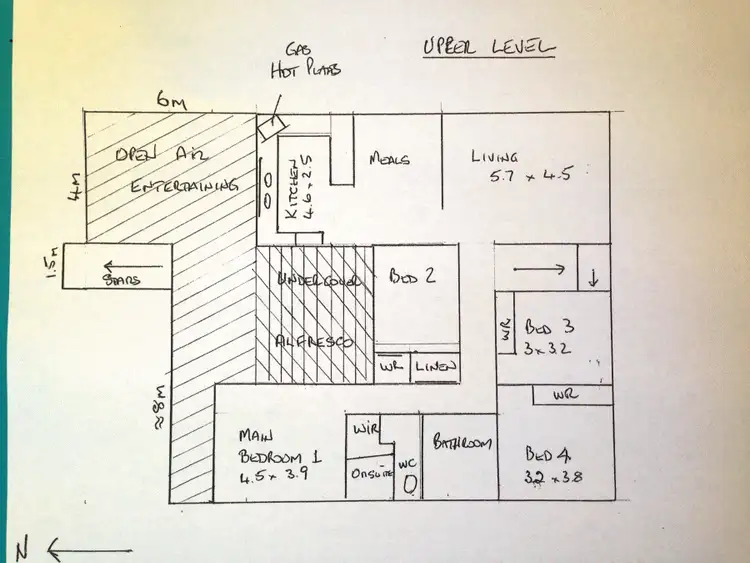 UPPER LEVEL
GAS
HOT PLATES
6M
OPEN AIR
ENTERTAINING
4M
KITCHEN
4.6 x 2.5
MEALS
LIVING
5.7 x 4.5
1.5M
STAIRS
UNDERCOVER
ALFRESCO
BED 2
WR
LINEN
WR
BED 3
3 x 3.2
WR
≈8M
MAIN
BEDROOM 1
4.5 x 3.9
WIR
ONSUITE
WC
BATHROOM
BED 4
3.2 x 3.8
N